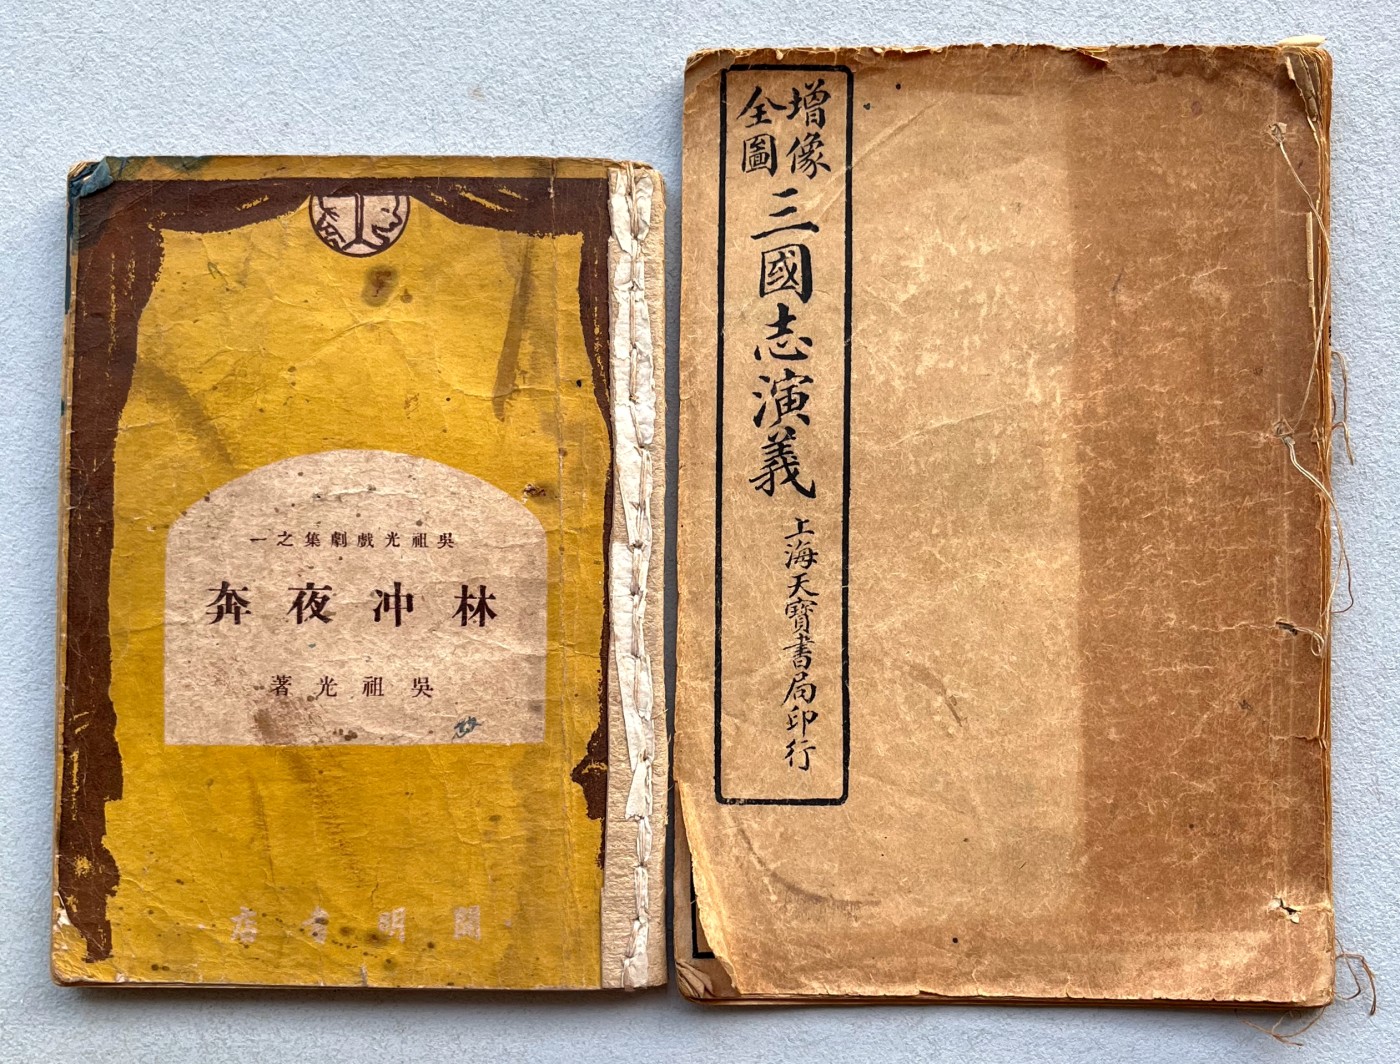 吳祖光戲劇集之一
林冲夜奔
吳祖光著
開明書店
增像
全圖
三國志演義
上海天寶書局印行